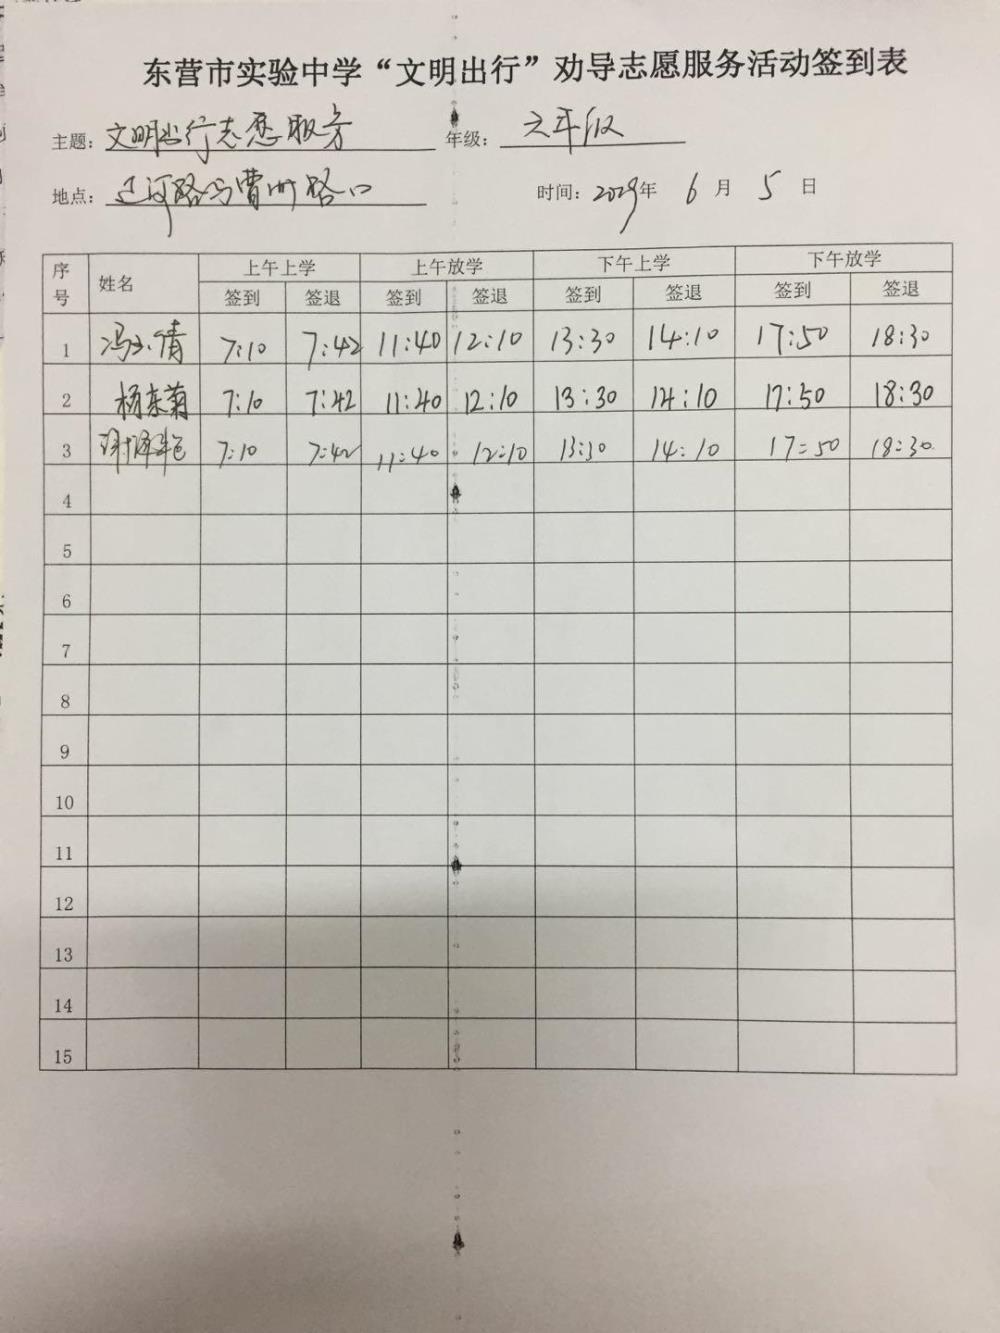 东营市实验中学“文明出行”劝导志愿服务活动签到表
主题：文明出行志愿服务 年级：六年级
地点：辽河路与曹州路口 时间：2019年 6 月 5 日
序号 姓名 上午上学 上午放学 下午上学 下午放学
签到 签退 签到 签退 签到 签退 签到 签退
1 冯玉倩 7:10 7:42 11:40 12:10 13:30 14:10 17:50 18:30
2 杨东菊 7:10 7:42 11:40 12:10 13:30 14:10 17:50 18:30
3 7:10 7:42 11:40 12:10 13:30 14:10 17:50 18:30
4
5
6
7
8
9
10
11
12
13
14
15